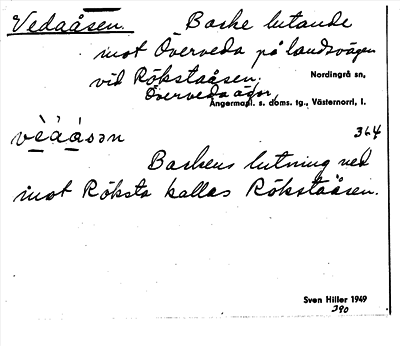 Vedaåsen. Backe lutande
mot Överveda på landsvägen
vid Rökstaåsen. Nordingrå sn,
Överveda ägor,
Ångermanl. s. doms. tg., Västernorrl. l.
vèàásən 364
Backens lutning ned
mot Röksta kallas Rökstaåsen.
Sven Hiller 1949
390